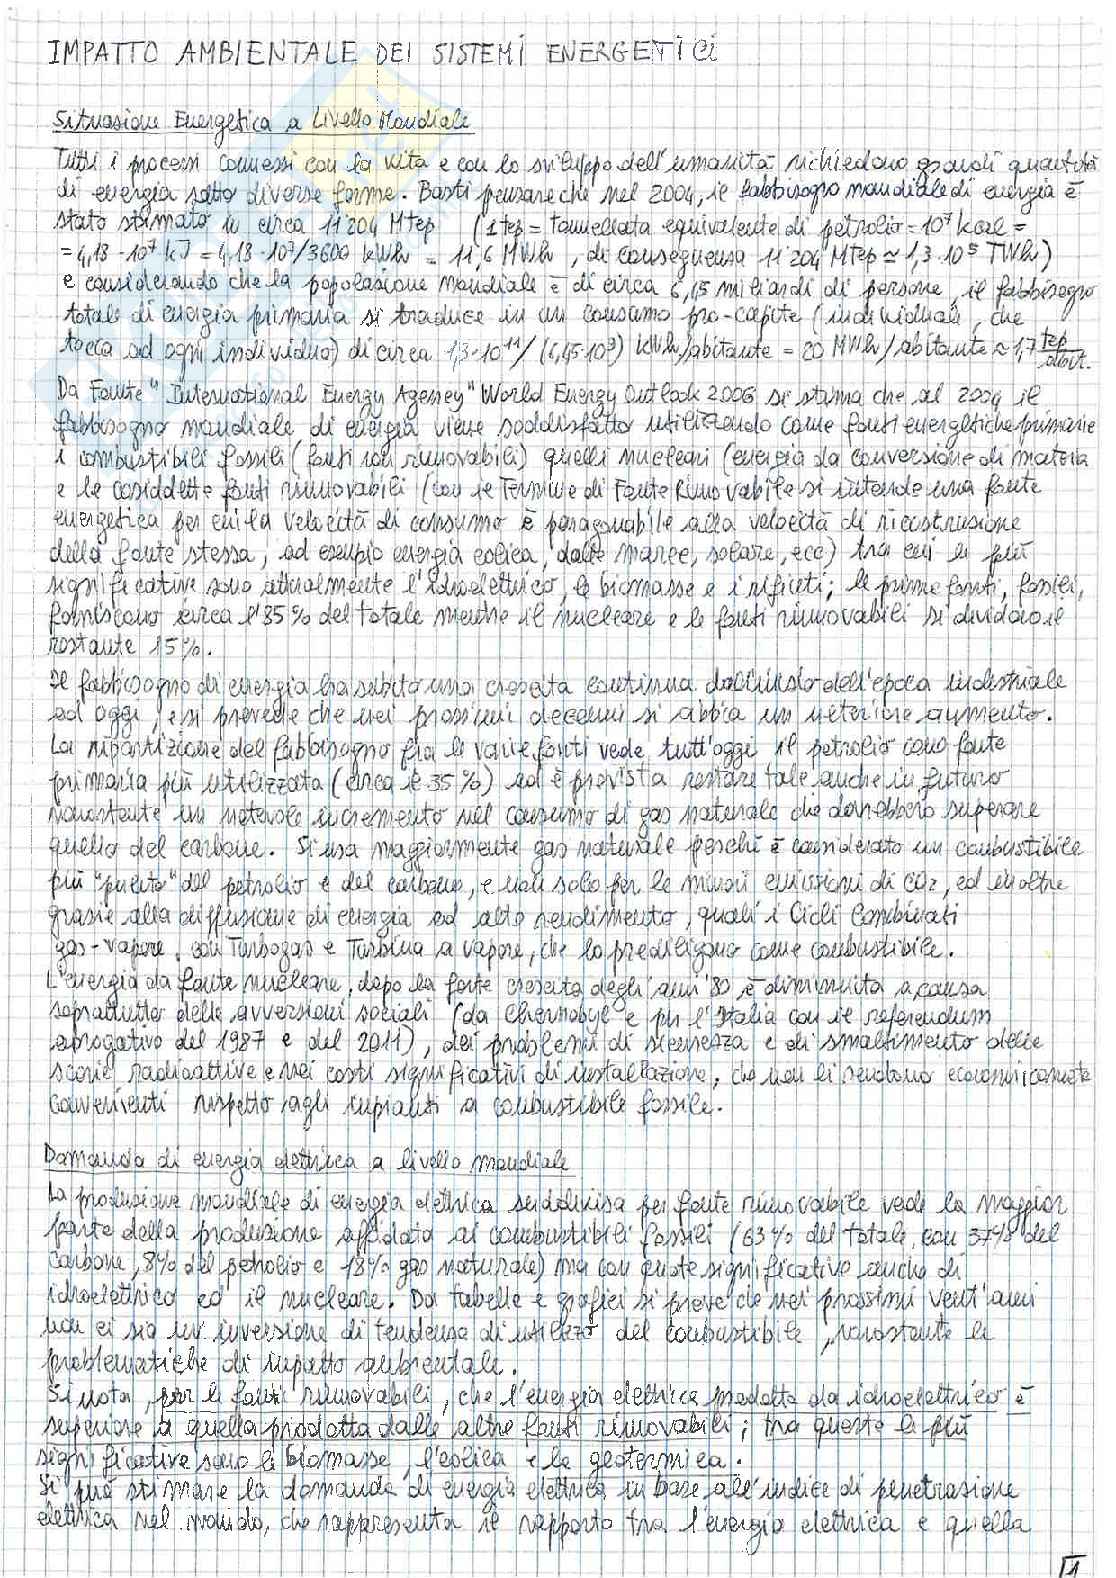 IMPATTO AMBIENTALE DEI SISTEMI ENERGETICI
Situazione Energetica a Livello Mondiale
Tutti i processi connessi con la vita e con lo sviluppo dell'umanità richiedono grandi quantità
di energia sotto diverse forme. Basti pensare che nel 2004, il fabbisogno mondiale di energia è
stato stimato in circa 11'204 MTep (1tep = tonnellata equivalente di petrolio = 10⁷ kcal =
= 4,18 · 10⁷ kJ = 4,18 · 10⁷/3600 kWh = 11,6 MWh, di conseguenza 11'204 MTep ≃ 1,3 · 10⁵ TWh)
e considerando che la popolazione mondiale è di circa 6,45 miliardi di persone, il fabbisogno
totale di energia primaria si traduce in un consumo pro-capite (individuale, che
tocca ad ogni individuo) di circa 1,3·10¹⁴/(6,45·10⁹) kWh/abitante = 20 MWh/abitante ≃ 1,7 tep/abit.
Da Fonte "International Energy Agency" World Energy Outlook 2006 si stima che al 2004 il
fabbisogno mondiale di energia viene soddisfatto utilizzando come fonti energetiche primarie
i combustibili fossili (fonti non rinnovabili) quelli nucleari (energia da conversione di materia
e le cosiddette fonti rinnovabili (con il Termine di Fonte Rinnovabile si intende una fonte
energetica per cui la velocità di consumo è paragonabile alla velocità di ricostruzione
della fonte stessa, ad esempio energia eolica, dalle maree, solare, ecc) tra cui le più
significative sono attualmente l'idroelettrico, le biomasse e i rifiuti; le prime fonti, fossili,
forniscono circa l'85% del totale mentre il nucleare e le fonti rinnovabili si dividono il
restante 15%.
Il fabbisogno di energia ha subito una crescita continua dall'inizio dell'epoca industriale
ad oggi, e si prevede che nei prossimi decenni si abbia un ulteriore aumento.
La ripartizione del fabbisogno fra le varie fonti vede tutt'oggi il petrolio come fonte
primaria più utilizzata (circa il 35%) ed è prevista restare tale anche in futuro
nonostante un notevole incremento nel consumo di gas naturale che dovrebbero superare
quello del carbone. Si usa maggiormente gas naturale perché è considerato un combustibile
più "pulito" del petrolio e del carbone, e non solo per le minori emissioni di CO2, ed inoltre
grazie alla diffusione di energia ad alto rendimento, quali i Cicli Combinati
gas-vapore, con Turbogas e Turbina a vapore, che lo prediligono come combustibile.
L'energia da fonte nucleare, dopo la forte crescita degli anni '80, è diminuita a causa
soprattutto delle avversioni sociali (da Chernobyl e per l'Italia con il referendum
abrogativo del 1987 e del 2011), dei problemi di sicurezza e di smaltimento delle
scorie radioattive e nei costi significativi di installazione, che non li rendono economicamente
convenienti rispetto agli impianti a combustibile fossile.
Domanda di energia elettrica a livello mondiale
La produzione mondiale di energia elettrica suddivisa per fonte rinnovabile vede la maggior
parte della produzione affidata ai combustibili fossili (63% del totale, con 37% del
carbone, 8% del petrolio e 18% gas naturale) ma con quote significative anche di
idroelettrico ed il nucleare. Da tabelle e grafici si prevede che nei prossimi vent'anni
non ci sia un inversione di tendenza di utilizzo del combustibile, nonostante le
problematiche di impatto ambientale.
Si nota, per le fonti rinnovabili, che l'energia elettrica prodotta da idroelettrico è
superiore a quella prodotta dalle altre fonti rinnovabili; tra queste le più
significative sono le biomasse, l'eolica e la geotermica.
Si può stimare la domanda di energia elettrica in base all'indice di penetrazione
elettrica nel mondo, che rappresenta il rapporto tra l'energia elettrica e quella
1